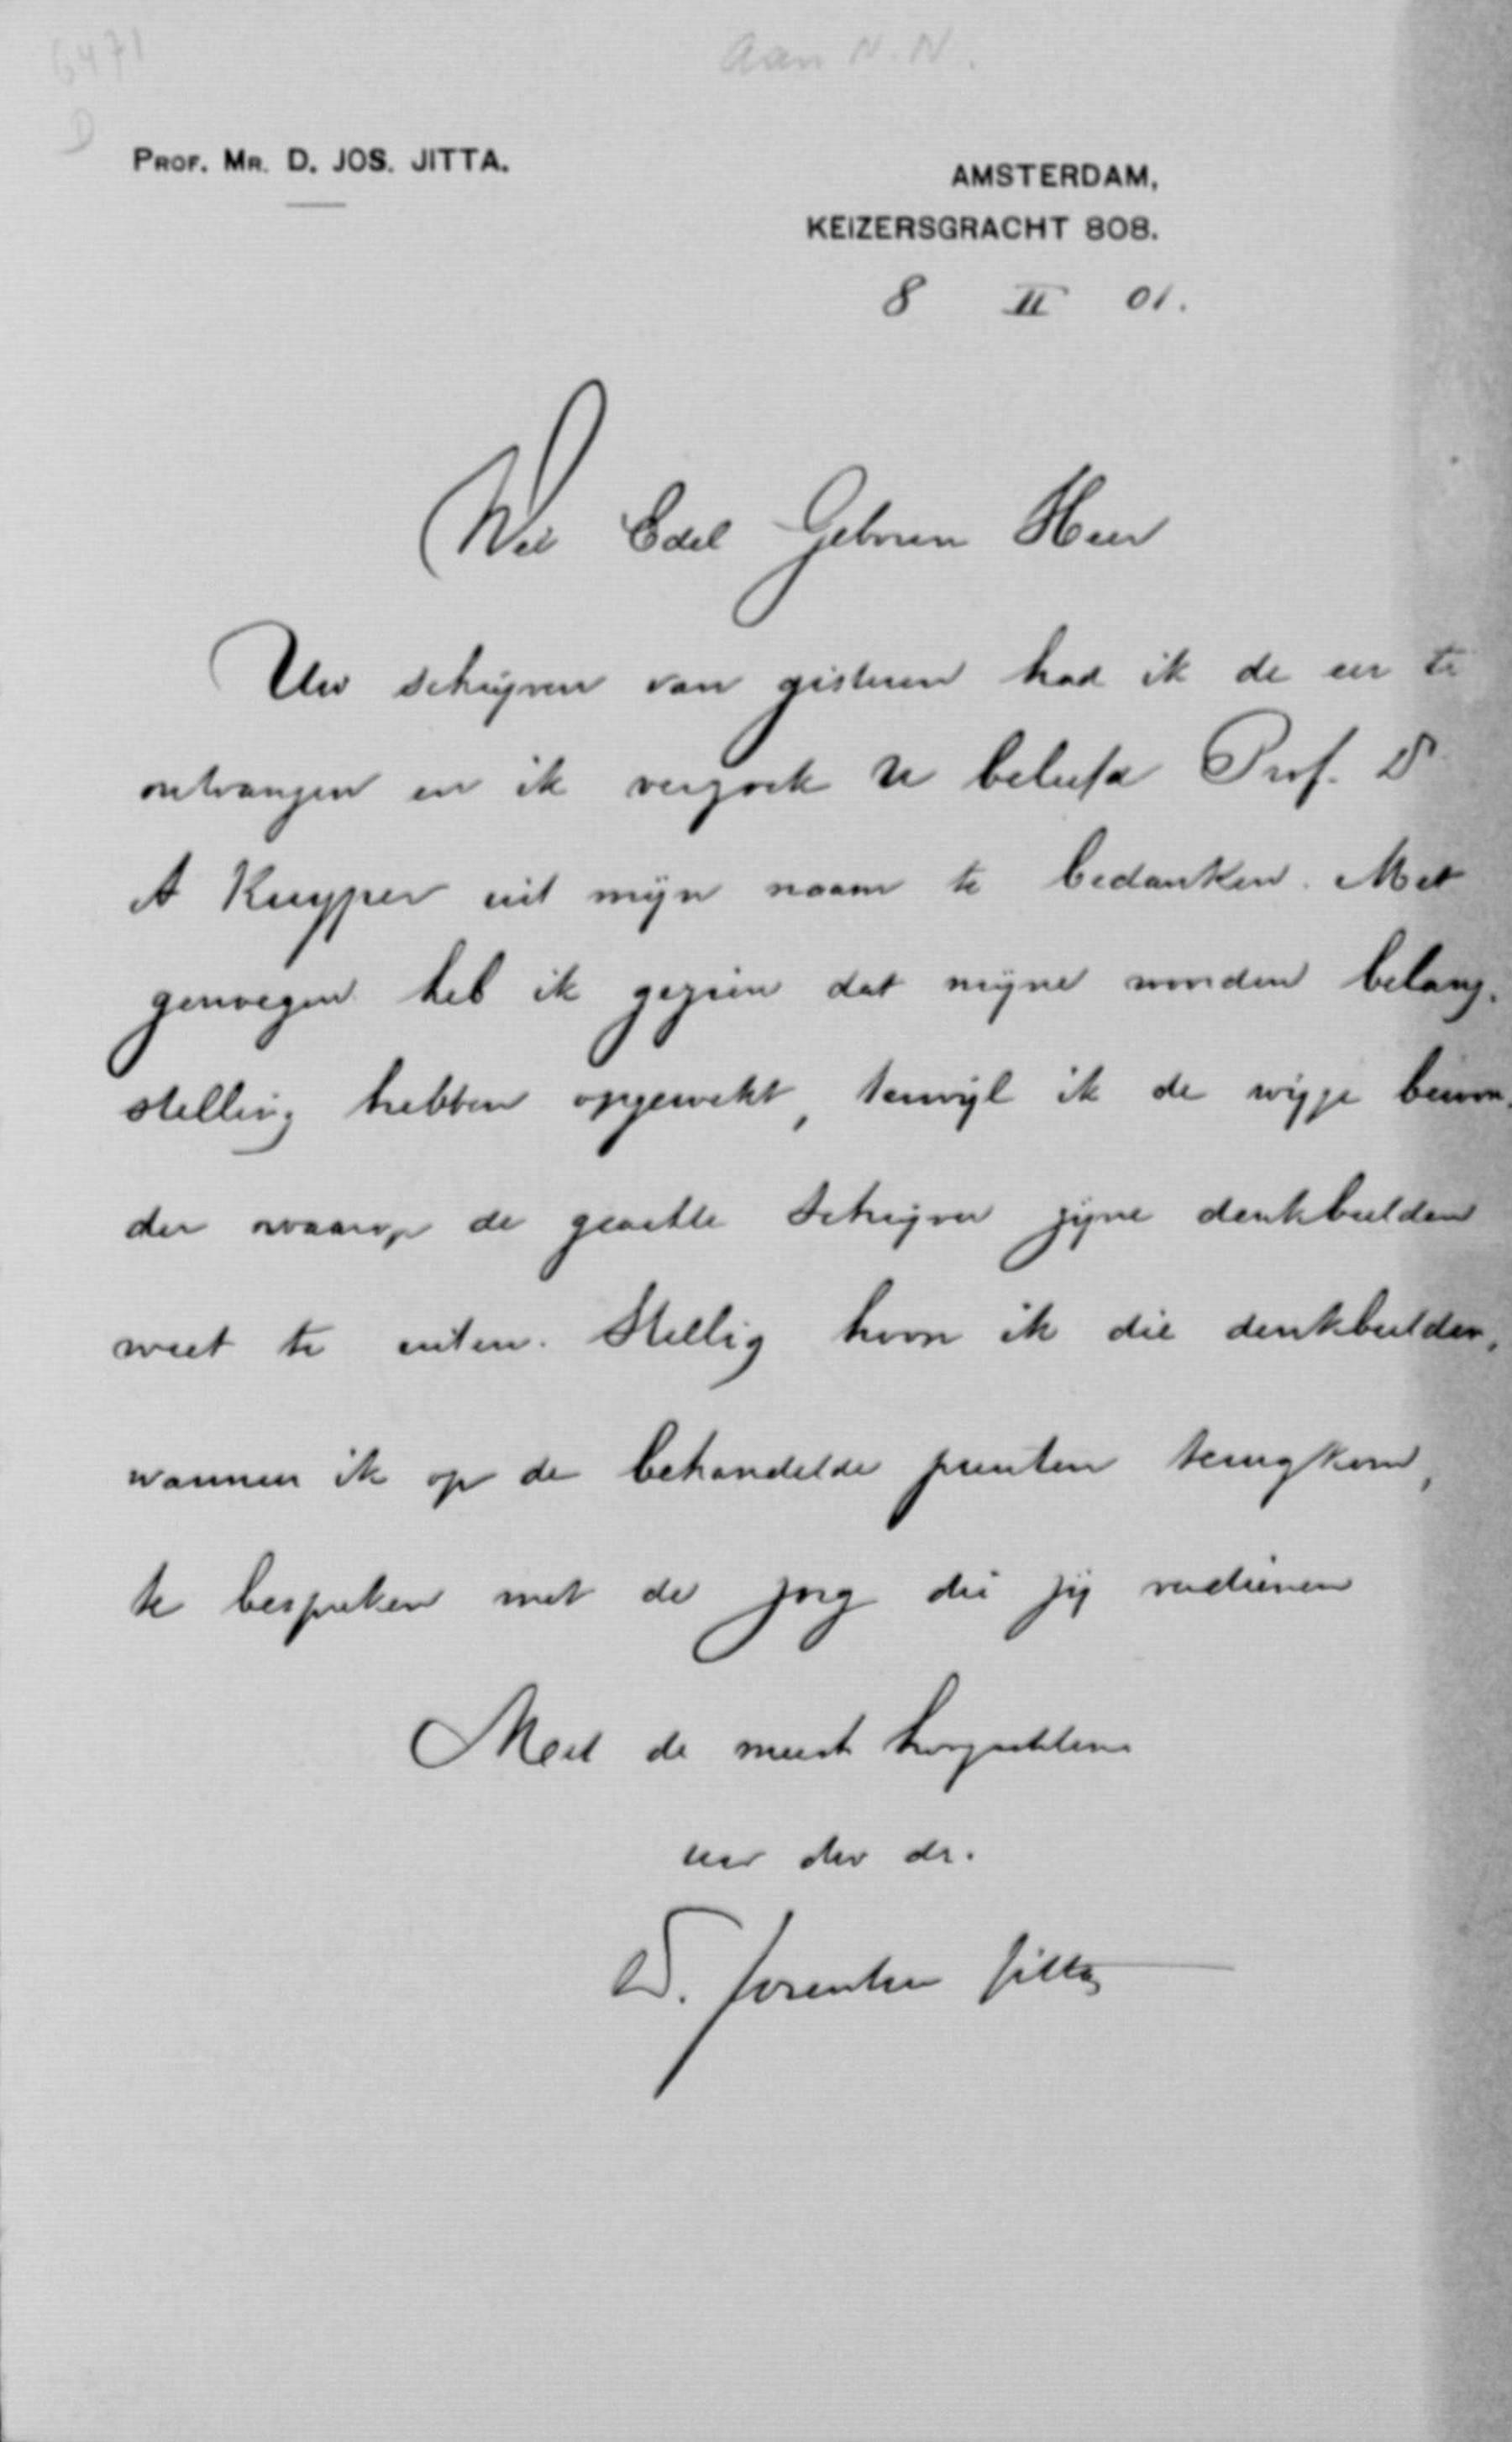 6471
Aan N. N.
D
PROF. MR. D. JOS. JITTA.
AMSTERDAM,
KEIZERSGRACHT 808.
8 II 01.
Wel Edel Geboren Heer
Uw schrijven van gisteren had ik de eer te
ontvangen en ik verzoek U beleefd Prof. Dr
A Kuyper uit mijn naam te bedanken. Met
genoegen heb ik gezien dat mijne woorden belang-
stelling hebben opgewekt, terwijl ik de wijze bewon-
der waarop de geachte schrijver zijne denkbeelden
weet te uiten. Stellig hoop ik die denkbeelden,
wanneer ik op de behandelde punten terugkom,
te bespreken met de zorg die zij verdienen
Met de meeste hoogachting
uw dw dr.
D. Josephus Jitta